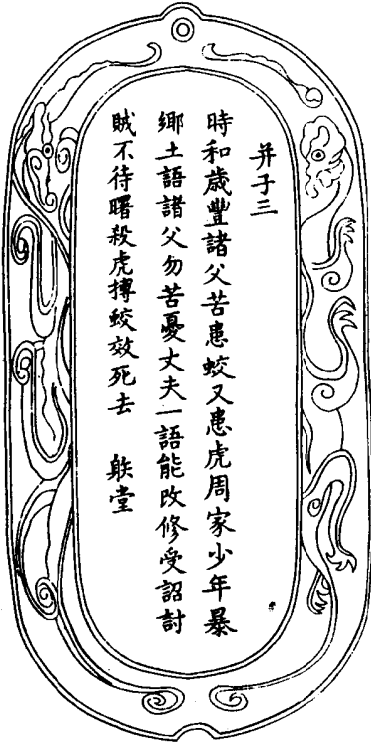 并子三
時和歲豐諸父苦患蛟又患虎周家少年暴
鄉土語諸父勿苦憂丈夫一語能改修受詔討
賊不待曙殺虎搏蛟效死去　䠶堂